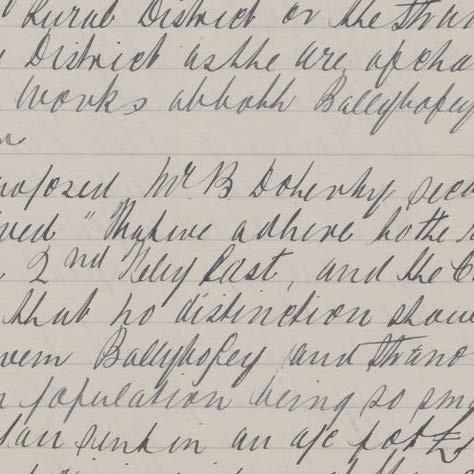 Rural District or the Stran
District as the are of cha
Works abbotth Ballybofey
proposed Mr B Doherty, sec
"That we adhere to the
2nd Feby last, and the C
that no distinction shou
Ballybofey and Strano
population being so sma
in an